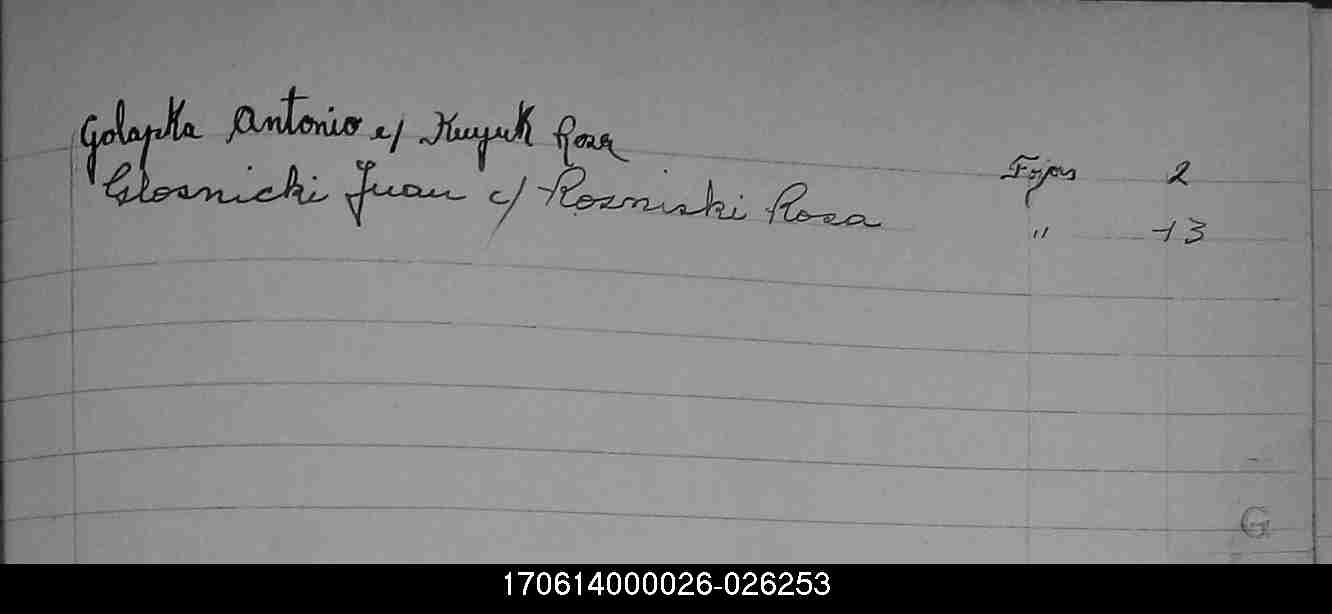 Golapka Antonio c/ Kuyuk Rosa Fojas 2
Glosnicki Juan c/ Rosniski Rosa " 13
G
170614000026-026253